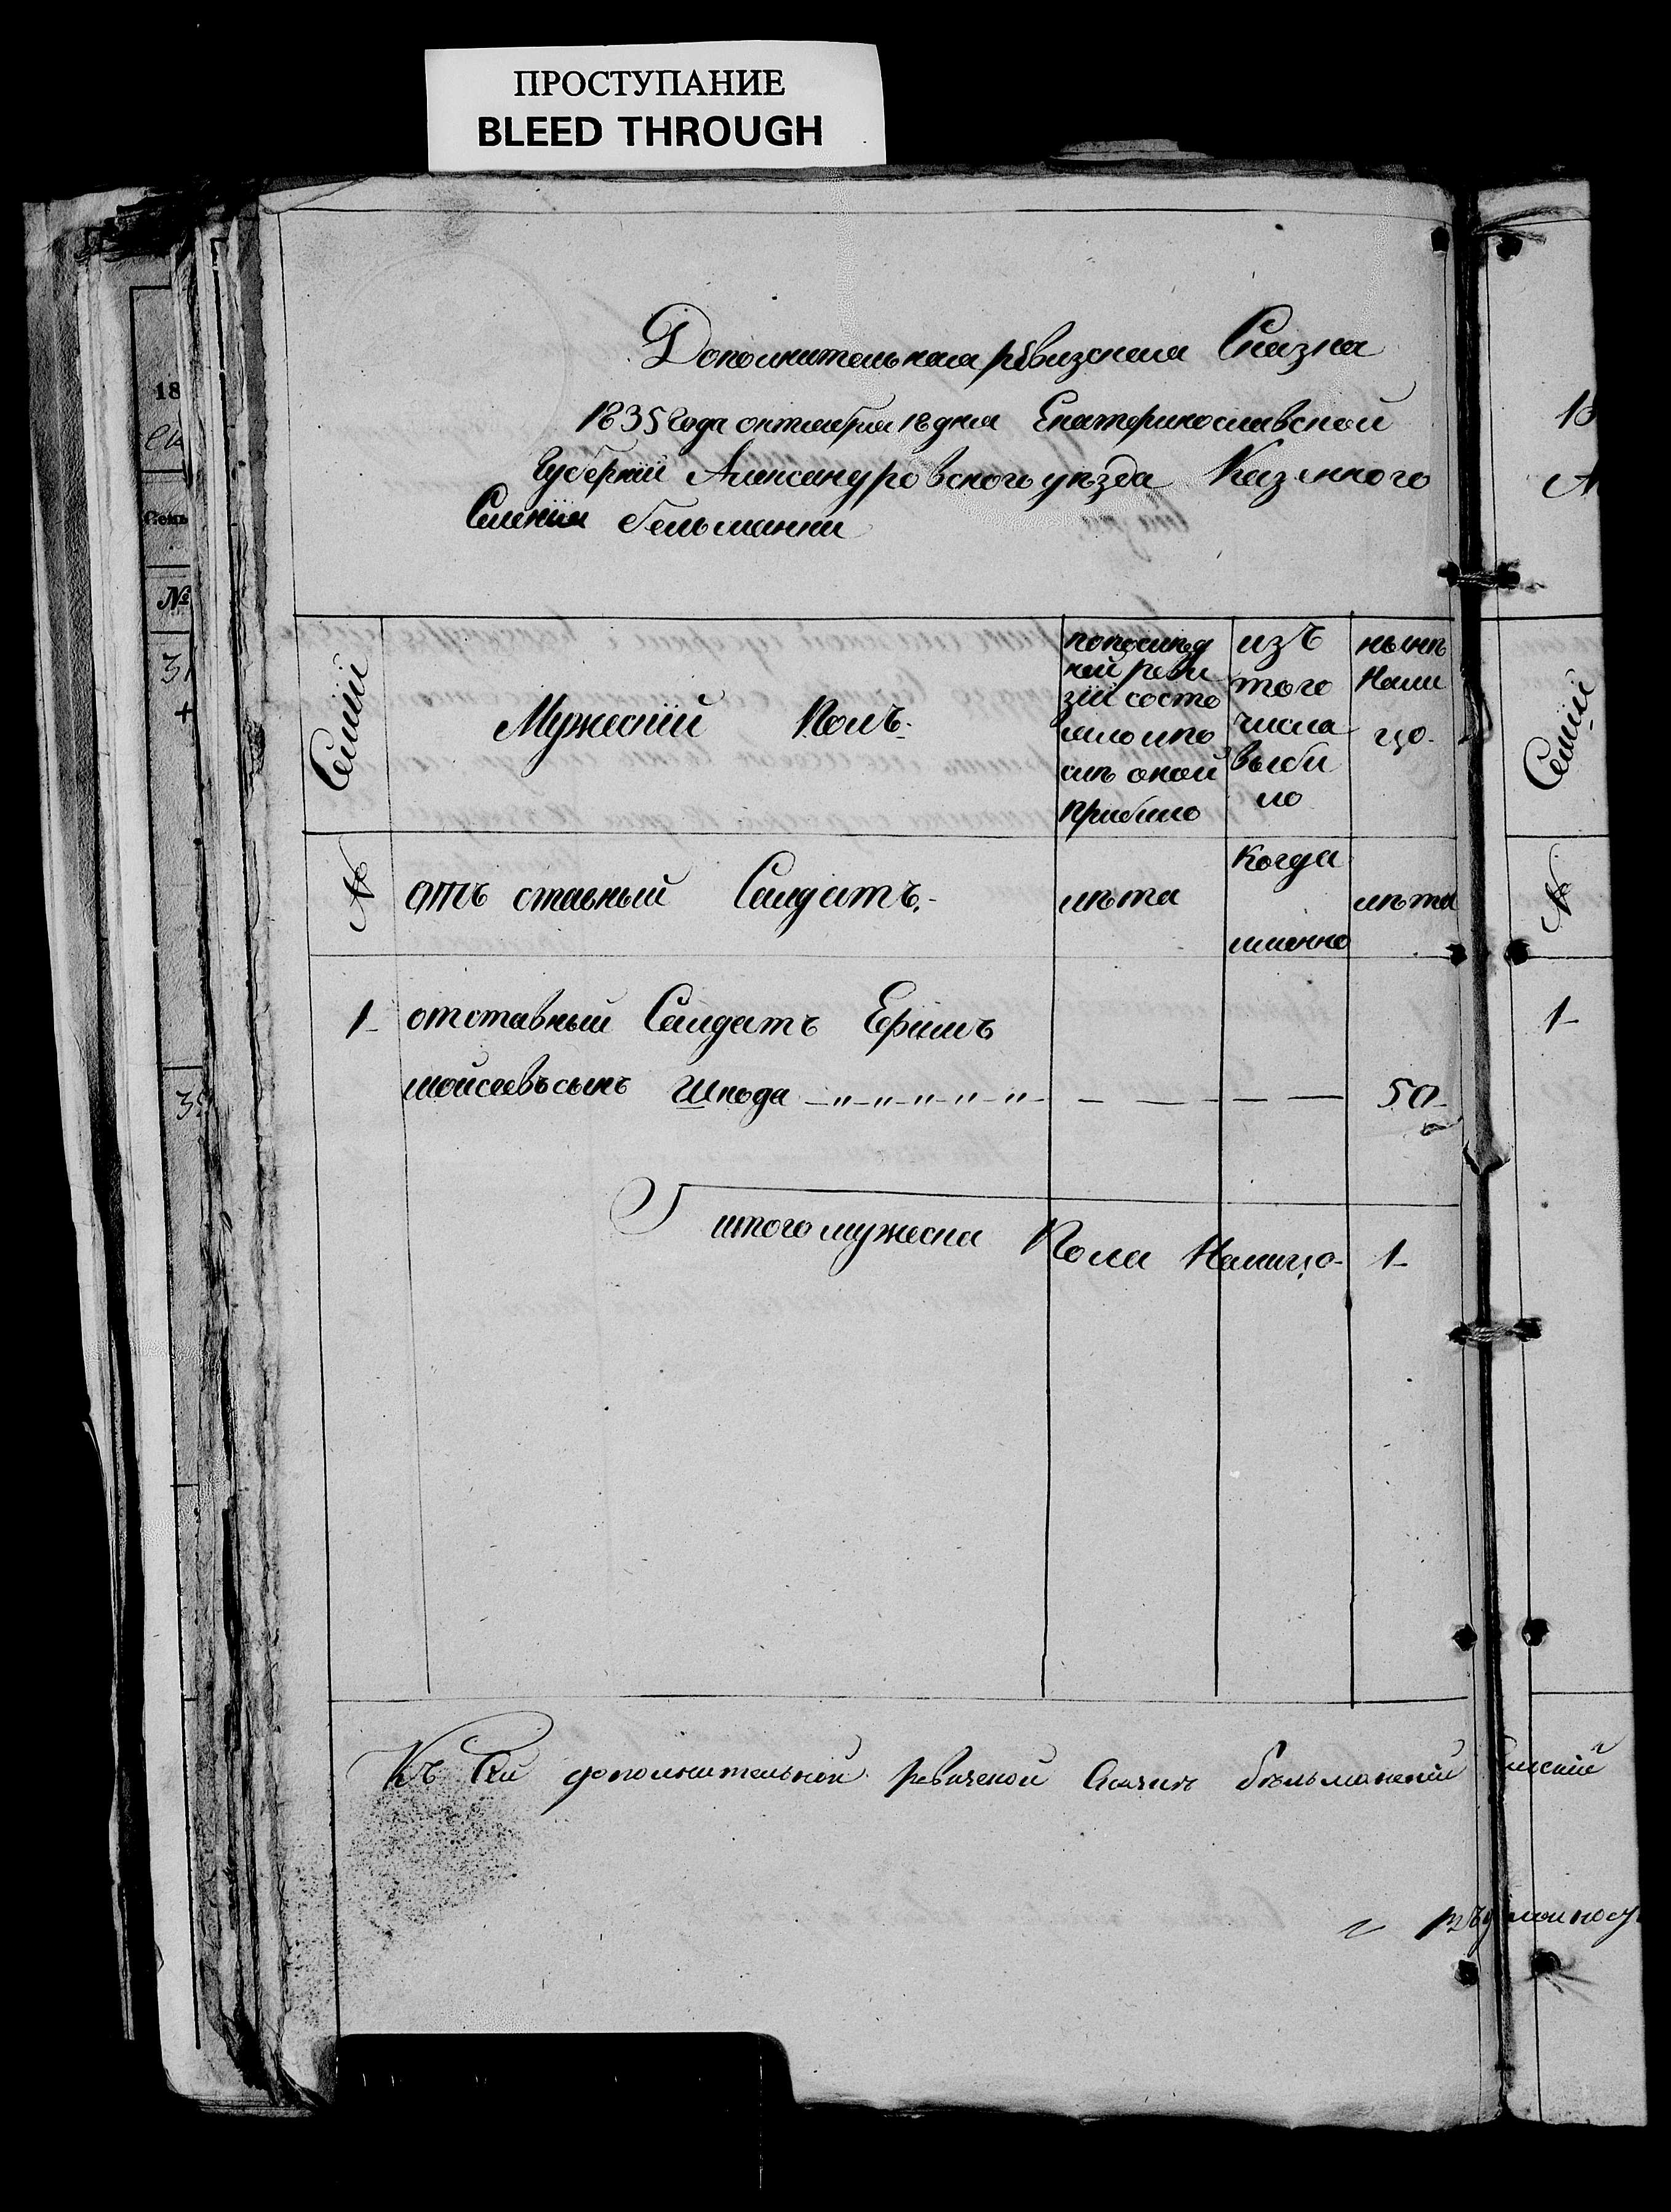 ПРОСТУПАНИЕ
BLEED THROUGH
Дополнительная ревизская Сказка
1835 года октября 18 дня Екатеринославской
Губерніи Александровского уезда Казенного
Селения бельманки
Семьи
Мужескій Полъ.
попослѣд
ней реви
зіи состо
яло ипо
слѣ оной
прибыло
изъ
того
числа
выбы
ло
нынѣ
Нали
цо.
№
отъ ставный Салдатъ.
лѣта
когда
имянно
лѣта
1 отставный Салдатъ Ефимъ
мойсеевъ сынъ Шкода 50
итого мужеска Пола Налицо 1
Къ Сей дополнительной ревизской Сказкѣ бельманский
18
№
31
+
18
А
Семьи
№
1